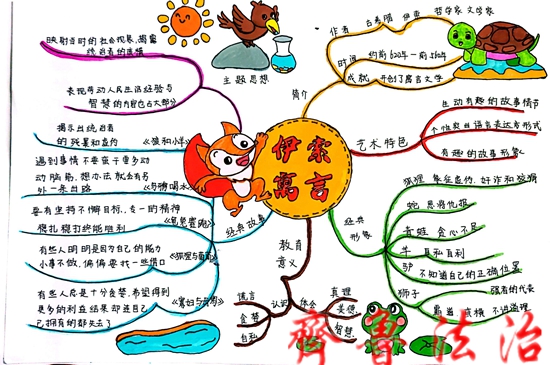 伊索
寓言
简介
作者
古希腊
哲学家 文学家
时间
约前620年-前560年
成就
开创了寓言文学
艺术特色
生动有趣的故事情节
个性突出语言表达方式
有趣的故事形象
经典
形象
狐狸 象征虚伪、奸诈和狡猾
蛇 恩将仇报
青蛙 贪心不足
牛 自私自利
驴 不知道自己的正确位置
狮子
强者的代表
霸道 威横 不讲道理
教育
意义
认识
谎言
贪婪
自私
体会
真理
美德
智慧
主题思想
表现劳动人民生活经验与
智慧的内容占大部分
经典故事
《狼和小羊》
揭示出统治者
遇到事情不要蛮干要多动
动脑筋,想办法就会有另
外一条出路
《龟兔赛跑》
要有坚持不懈目标、专一的精神
稳扎稳打终能胜利
有些人明明是因为自己的能力
小事不做,偏偏要找一些借口
有些人总是十分贪婪,希望得到
更多的利益结果却连自己
已拥有的都失去了
齐鲁法治